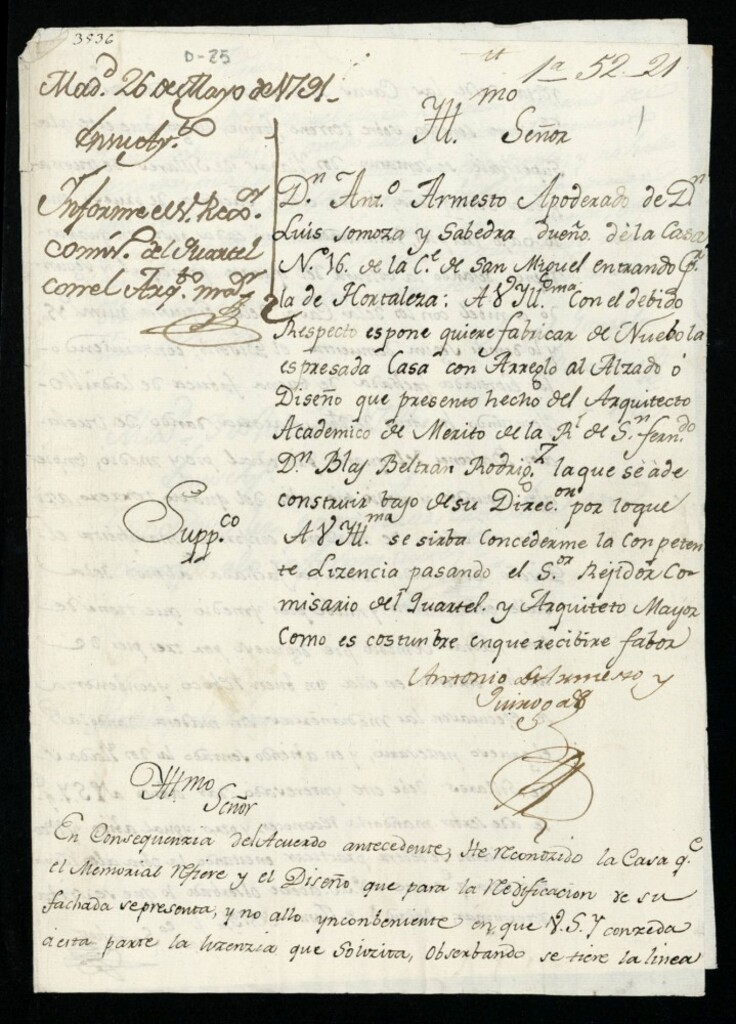 3936
D-25
1ª 52-21
1
Madᵈ. 26 de Mayo de 1791.
En su Ayᵗᵒ.
Informe el Sʳ. Rexᵒʳ.
comisº. del Quartel
con el Arqᵗᵒ. mayʳ.
Illᵐᵒ. Señor
Dⁿ. Antº. Armesto Apoderado de Dⁿ
Luis Somoza y Sabedra dueño. de la Casa
Nº 16. de la Cᵉ. de San Miguel entrando Pʳ.
la de Hortaleza: A V Illᵐᵃ Con el debido
Respecto espone quiere fabricar de Nuebo la
espresada Casa con Arreglo al Alzado ó
Diseño que presento hecho del Arquitecto
Academico de Merito de la Rˡ de Sⁿ. fernᵈᵒ
Dⁿ. Blas Beltran Rodrigᶻ. la que se ade
construir bajo de su Direcᵒⁿ. por loque
Suppᶜᵒ
A V Illᵐᵃ se sirba Concederme la Conpeten
te Lizencia pasando el Sᵒʳ. Rejidor Co-
misario del Quartel. y Arquiteto Mayor
Como es costunbre enque recibire fabor
Antonio de Armesto y
Quiroga
Illᵐᵒ
Señor
En Consequenzia del Acuerdo antecedente, He reconozido la Casa q.ᵉ
el Memorial refiere y el Diseño que para la Redificacion de su
fachada se presenta, y no allo ynconbeniente en que V.S.Y conzeda
a esta parte la lizenzia que Solizita, Obserbando se tiere la linea